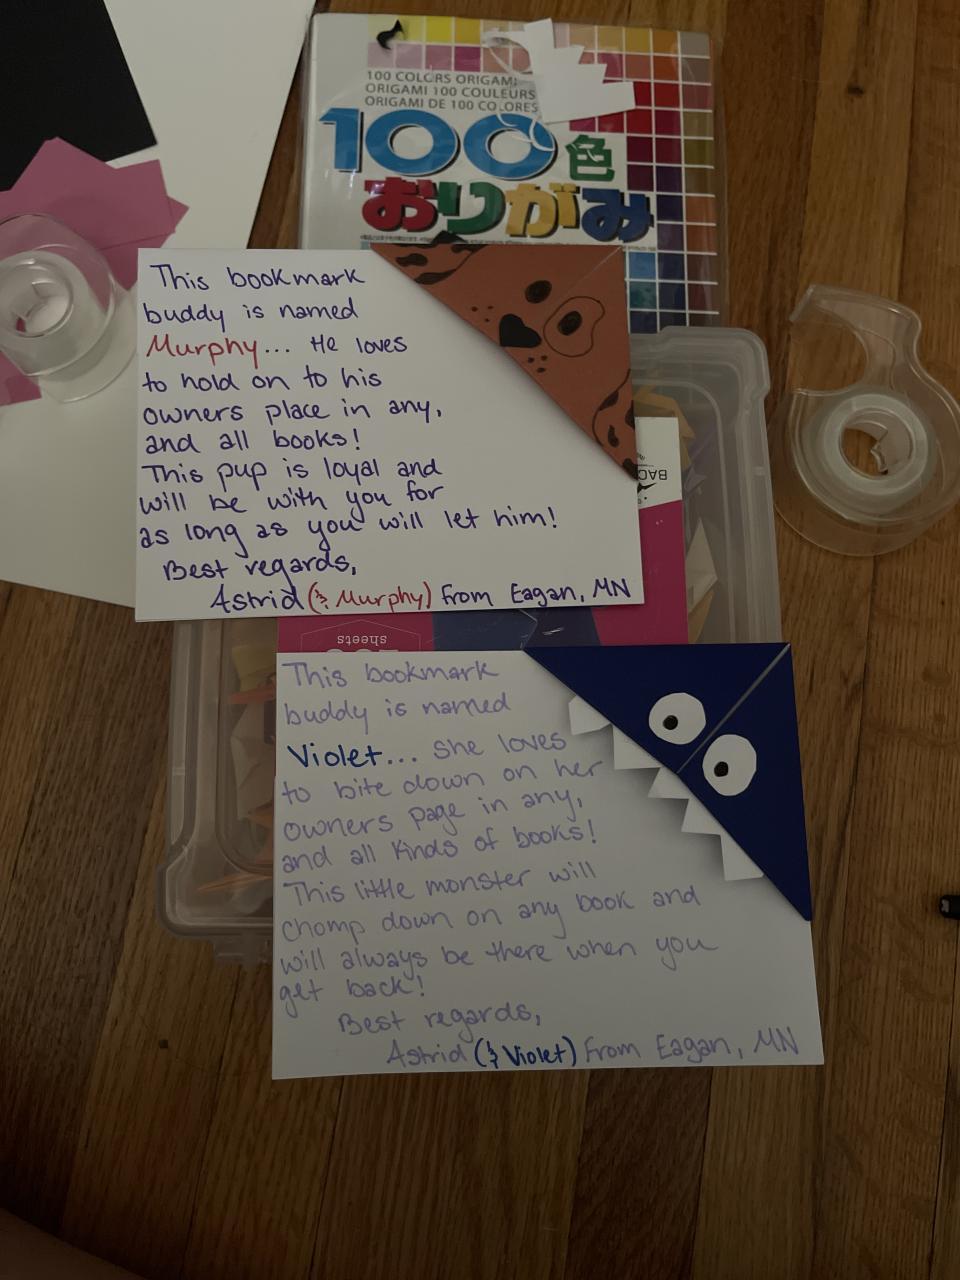 100 COLORS ORIGAMI
ORIGAMI 100 COULEURS
ORIGAMI DE 100 COLORES
100色
おりがみ
This bookmark
buddy is named
Murphy... He loves
to hold on to his
owners place in any,
and all books!
This pup is loyal and
will be with you for
as long as you will let him!
Best regards,
Astrid (& Murphy) from Eagan, MN
BAC
sheets
This bookmark
buddy is named
Violet... she loves
to bite down on her
owners page in any,
and all kinds of books!
This little monster will
chomp down on any book and
will always be there when you
get back!
Best regards,
Astrid (& Violet) from Eagan, MN